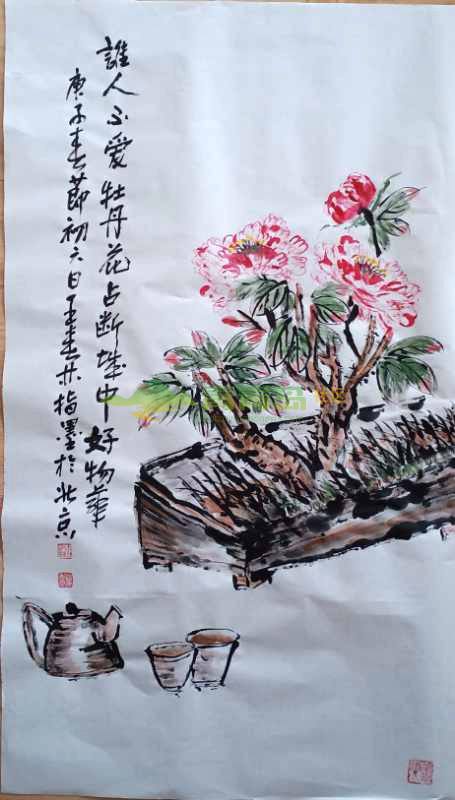 誰人不爱牡丹花占断城中好物华
庚子春節初六日王春林指墨於北京